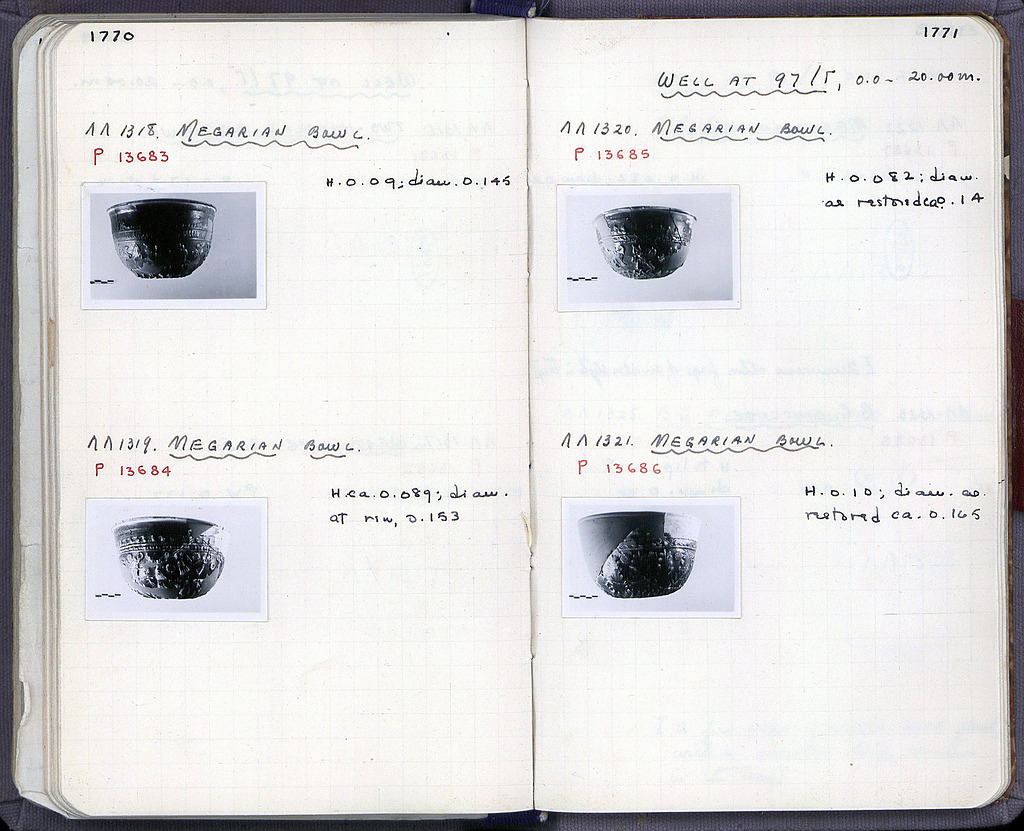 1770
ΛΛ 1318. MEGARIAN BOWL.
P 13683
H. 0.09; diam. 0.145
ΛΛ 1319. MEGARIAN BOWL.
P 13684
H. ca. 0.089; diam.
at rim, 0.153
1771
WELL AT 97/Γ, 0.0 - 20.00 m.
ΛΛ 1320. MEGARIAN BOWL.
P 13685
H. 0.082; diam.
as restored ca. 0.14
ΛΛ 1321. MEGARIAN BOWL.
P 13686
H. 0.10; diam. as
restored ca. 0.165